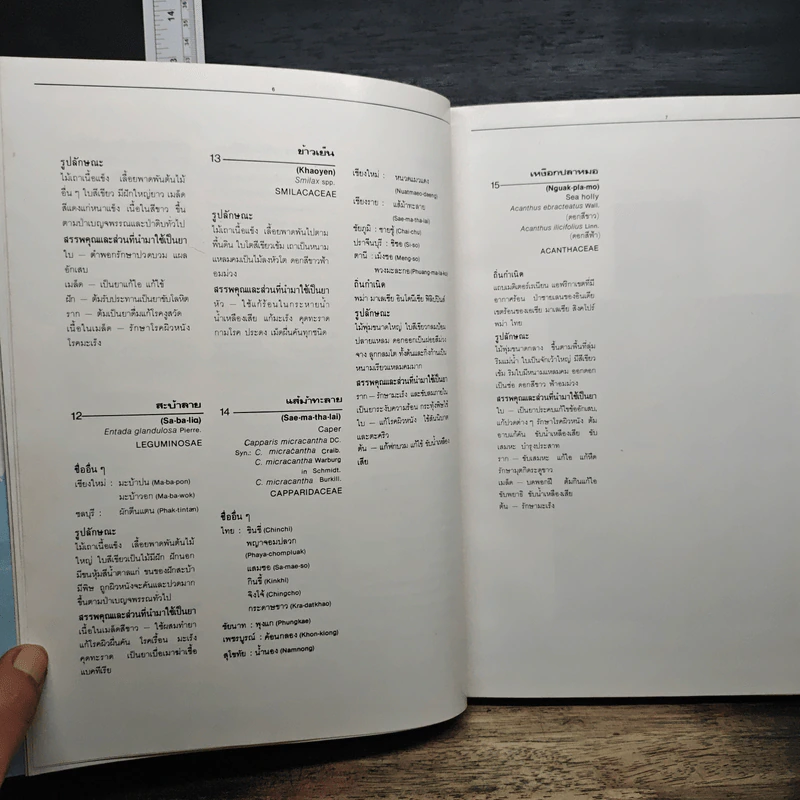 14
13
6
รูปลักษณะ
ไม้เถาเนื้อแข็ง เลื้อยพาดพันต้นไม้
อื่น ๆ ใบสีเขียว มีฝักใหญ่ยาว เมล็ด
สีแดงแก่หนาแข็ง เนื้อในสีขาว ขึ้น
ตามป่าเบญจพรรณและป่าดิบทั่วไป
สรรพคุณและส่วนที่นำมาใช้เป็นยา
ใบ – ตำพอกรักษาปวดบวม แผล
อักเสบ
เมล็ด – เป็นยาแก้ไอ แก้ไข้
ฝัก – ต้มรับประทานเป็นยาขับโลหิต
ราก – ต้มเป็นยาดื่มแก้ไตงูสวัด
เนื้อในเมล็ด – รักษาโรคผิวหนัง
โรคมะเร็ง
12
สะบ้าลาย
(Sa-ba-liq)
Entada glandulosa Pierre.
LEGUMINOSAE
ชื่ออื่น ๆ
เชียงใหม่ : มะบ้าปน (Ma-ba-pon)
มะบ้าวอก (Ma-ba-wok)
ชลบุรี : ผักตีนแดน (Phak-tintan)
รูปลักษณะ
ไม้เถาเนื้อแข็ง เลื้อยพาดพันต้นไม้
ใหญ่ ใบสีเขียวเป็นไม้มีฝัก ฝักนอก
มีขนหุ้มสีน้ำตาลแก่ ขนของฝักสะบ้า
มีพิษ ถูกผิวหนังจะคันและปวดมาก
ขึ้นตามป่าเบญจพรรณทั่วไป
สรรพคุณและส่วนที่นำมาใช้เป็นยา
เนื้อในเมล็ดสีขาว – ใช้ผสมทำยา
แก้โรคผิวผื่นคัน โรคเรื้อน มะเร็ง
คุดทะราด เป็นยาเบื่อเมาฆ่าเชื้อ
แบคทีเรีย
13
ข้าวเย็น
(Khaoyen)
Smilax spp.
SMILACACEAE
รูปลักษณะ
ไม้เถาเนื้อแข็ง เลื้อยพาดพันไปตาม
พื้นดิน ใบโตสีเขียวเข้ม เถาเป็นหนาม
แหลมคมเป็นไม้ลงหัวโต ดอกสีขาวฟ้า
อมม่วง
สรรพคุณและส่วนที่นำมาใช้เป็นยา
หัว – ใช้แก้ร้อนในกระหายน้ำ
น้ำเหลืองเสีย แก้มะเร็ง คุดทะราด
กามโรค ประดง เม็ดผื่นคันทุกชนิด
14
แส้ม้าทะลาย
(Sae-ma-tha-lai)
Caper
Capparis micracantha DC.
Syn.: C. micracantha Craib.
C. micracantha Warburg
in Schmidt.
C. micracantha Burkill.
CAPPARIDACEAE
ชื่ออื่น ๆ
ไทย : ชินชี่ (Chinchi)
พญาจอมปลวก
(Phaya-chompluak)
แสมซอ (Sa-mae-so)
กินขี้ (Kinkhi)
จิงโจ้ (Chingcho)
กระดาษขาว (Kra-datkhao)
ชัยนาท : พุงแก (Phungkae)
เพชรบูรณ์ : ค้อนกลอง (Khon-klong)
สุโขทัย : น้ำนอง (Namnong)
เชียงใหม่ : หนวดแมวแดง
(Nuatmaeo-daeng)
เชียงราย : แส้ม้าทะลาย
(Sae-ma-tha-lai)
ชัยภูมิ : ชายชู้ (Chai-chu)
ปราจีนบุรี : ชิซอ (Si-so)
ตานี : เม็งซอ (Meng-so)
พวงมะละกอ (Phuang-ma-la-ko)
ถิ่นกำเนิด
พม่า มาเลเซีย อินโดนีเซีย ฟิลิปปินส์
รูปลักษณะ
ไม้พุ่มขนาดใหญ่ ใบสีเขียวกลมป้อม
ปลายแหลม ดอกออกเป็นฝอยสีม่วง
จาง ลูกกลมโต ทั้งต้นและกิ่งก้านเป็น
หนามเรียวแหลมคมมาก
สรรพคุณและส่วนที่นำมาใช้เป็นยา
ราก – รักษามะเร็ง และขับลมภายใน
เป็นยาระงับความร้อน กระทุ้งพิษไข้
ใบ – แก้โรคผิวหนัง ใช้สันนิบาต
และตะคริว
ต้น – แก้ฟกบวม แก้ไข้ ขับน้ำเหลือง
เสีย
15
เหงือกปลาหมอ
(Nguak-pla-mo)
Sea holly
Acanthus ebracteatus Wall.
(ดอกสีขาว)
Acanthus ilicifolius Linn.
(ดอกสีฟ้า)
ACANTHACEAE
ถิ่นกำเนิด
แถบเมดิเตอร์เรเนียน แอฟริกาเขตที่มี
อากาศร้อน ป่าชายเลนของอินเดีย
เขตร้อนของเอเชีย มาเลเซีย สิงคโปร์
พม่า ไทย
รูปลักษณะ
ไม้พุ่มขนาดกลาง ขึ้นตามพื้นที่ลุ่ม
ริมแม่น้ำ ใบเป็นจักเว้าใหญ่ มีสีเขียว
เข้ม ริมใบมีหนามแหลมคม ออกดอก
เป็นช่อ ดอกสีขาว ฟ้าอมม่วง
สรรพคุณและส่วนที่นำมาใช้เป็นยา
ใบ – เป็นยาประคบแก้ไขข้ออักเสบ
แก้ปวดต่าง ๆ รักษาโรคผิวหนัง ต้ม
อาบแก้คัน ขับน้ำเหลืองเสีย ขับ
เสมหะ บำรุงประสาท
ราก – ขับเสมหะ แก้ไอ แก้หืด
รักษามุตกิดระดูขาว
เมล็ด – บดพอกฝี ต้มกินแก้ไอ
ขับพยาธิ ขับน้ำเหลืองเสีย
ต้น – รักษามะเร็ง